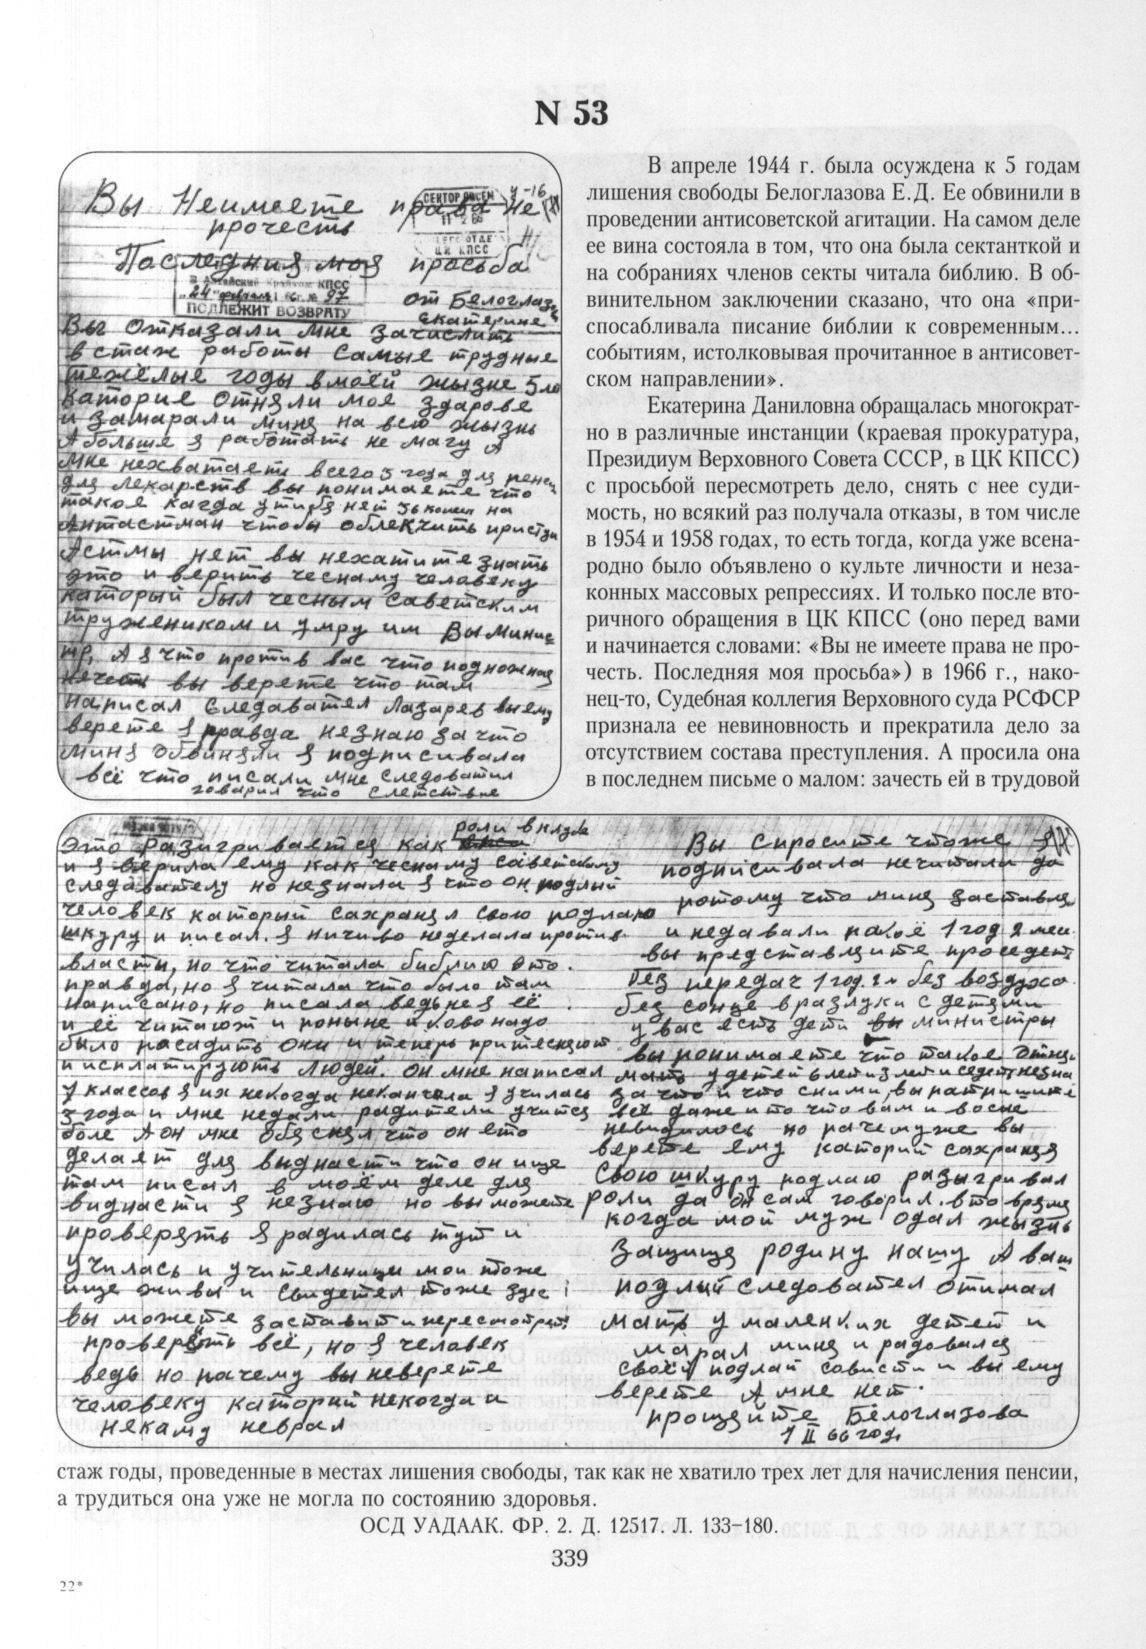 N 53
Вы Неимеете права не
прочесть
СЕКТОР ПИСЕМ
ЦК КПСС
Последния моя прасьба
КПСС
"24" февраля № 97
ПОДЛЕЖИТ ВОЗВРАТУ
от Белоглаз
Екатерине
Вы отказали мне зачислить
в стаж работы самые трудные
тежёлые годы в моей жызне 5 ло
каторие отняли мое здарове
и замарали миня на всю жызнь
А больше я работать не магу А
мне нехватает всего 3 года для пенси
для лекарств вы понимаете что
такое кагда у тибя нет 36 копеи на
Антастман чтобы облекчить приступ
Астмы нет вы нехатите знать
это и верить чеснаму человеку
каторый был чесным саветским
тружеником и умру им Вы Минис
тр, А я что против вас что подножная
нечесть вы верете что там
написал Следавател Лазарев вы ему
верете я правда незнаю за что
миня обвиняли я подписивала
всё что писали мне следоватил
говарил что слетствие
В апреле 1944 г. была осуждена к 5 годам
лишения свободы Белоглазова Е.Д. Ее обвинили в
проведении антисоветской агитации. На самом деле
ее вина состояла в том, что она была сектанткой и
на собраниях членов секты читала библию. В об-
винительном заключении сказано, что она «при-
спосабливала писание библии к современным...
событиям, истолковывая прочитанное в антисовет-
ском направлении».
Екатерина Даниловна обращалась многократ-
но в различные инстанции (краевая прокуратура,
Президиум Верховного Совета СССР, в ЦК КПСС)
с просьбой пересмотреть дело, снять с нее суди-
мость, но всякий раз получала отказы, в том числе
в 1954 и 1958 годах, то есть тогда, когда уже всена-
родно было объявлено о культе личности и неза-
конных массовых репрессиях. И только после вто-
ричного обращения в ЦК КПСС (оно перед вами
и начинается словами: «Вы не имеете права не про-
честь. Последняя моя просьба») в 1966 г., нако-
нец-то, Судебная коллегия Верховного суда РСФСР
признала ее невиновность и прекратила дело за
отсутствием состава преступления. А просила она
в последнем письме о малом: зачесть ей в трудовой
роли в клубе
Это разигривается как
и я верила ему как чеснаму саветскаму
следавателу но незнала я что он подлый
человек каторый сахранял свою подлаю
шкуру и писал. я ничиво неделала против
власти, но что читала библию это.
правда, но я читала что было там
написано, но писала ведь не я её
и её читают и поныне и ково надо
было расадить они и теперь притесняют
и исплатирують людей. он мне написал
7 классов я их некогда неканчала я училась
3 года и мне недали радители учится
боле А он мне обяснял что он ето
делает для виднасти что он ище
там писал в моём деле для
виднасти я незнаю но вы можете
проверять я радилась тут и
училась и учительници мои тоже
ище живы и свидетел тоже здес
вы можете заставит и пересмотрет
проверить всё, но я человек
ведь но пачему вы неверете
человеку каторий некогда и
некаму неврал
Вы спросите чтоже я
подписивала нечитала да
потому что миня заставля
и недавали пакоя 1 год 2 мес
вы представците проседет
Без передач 1 год 2 м без воздуха
без сонце в разлуки с детями
у вас есть дети вы министры
вы понимаете что такое отнц
мать у детей 6 лет и 3 лет и седет незна
за что и что сними вы патпишите
всё даже и то что вам и восне
невидилось но пачемуже вы
верете ему каторий сахраняя
свою шкуру подлаю разыгривал
роли да он сам говорил. в то время
когда мой муж одал жызнь
защищя родину нашу А ваш
подлый следовател отимал
мать у маленких детей и
марал миня и радовался
своей подлай совисти и вы ему
верете А мне нет.
прощяйте Белоглазова
1 II 66 год
стаж годы, проведенные в местах лишения свободы, так как не хватило трех лет для начисления пенсии,
а трудиться она уже не могла по состоянию здоровья.
ОСД УАДААК. ФР. 2. Д. 12517. Л. 133–180.
339
22*